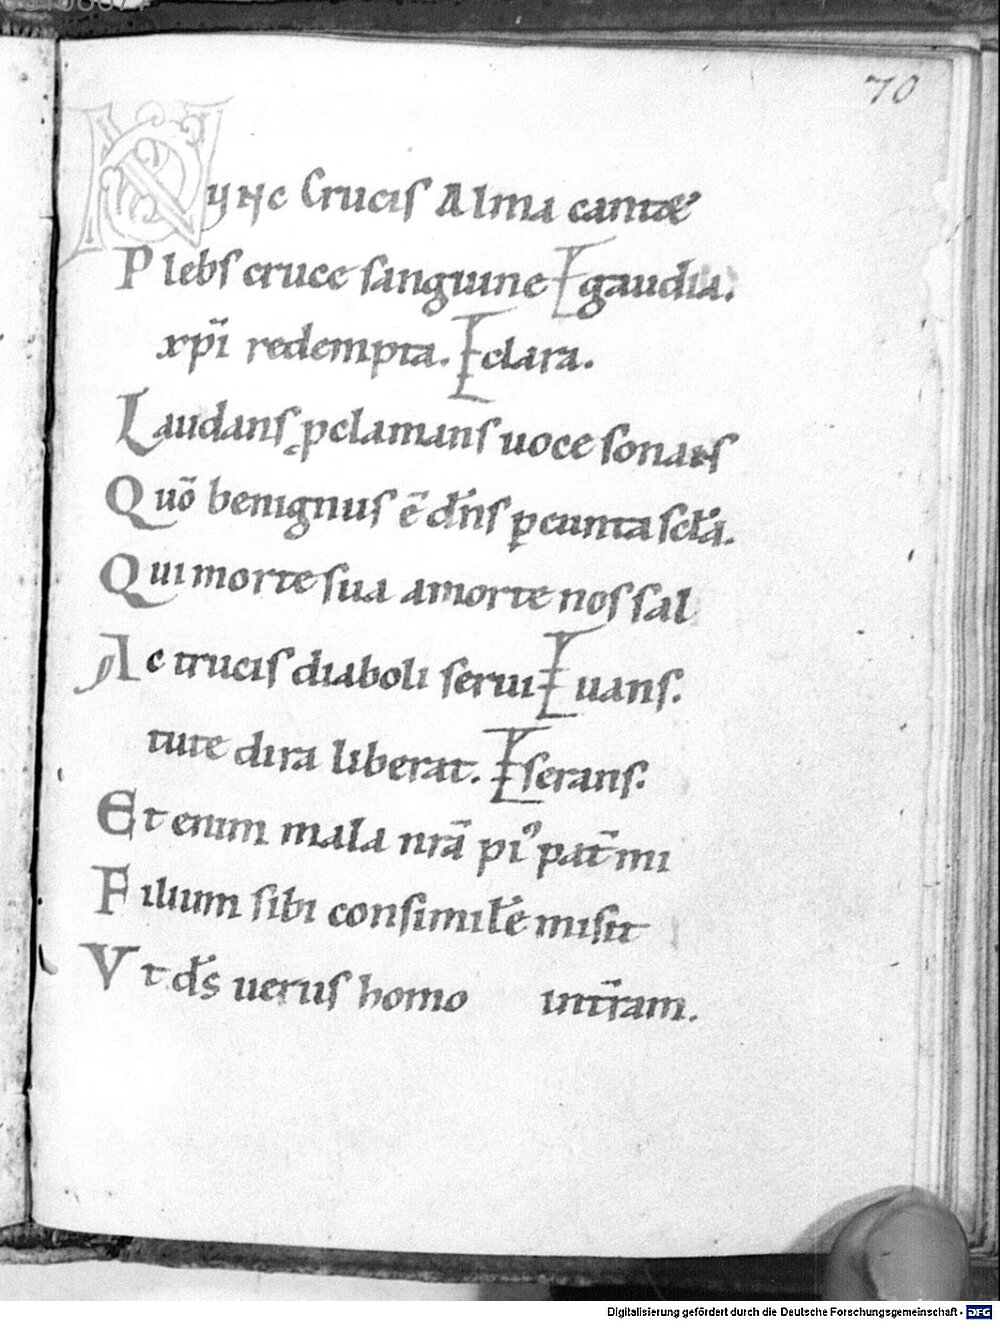 70
NUNC Crucis Alma cantæ
Plebs cruce sanguine gaudia.
xpi redempta. clara.
Laudans pclamans uoce sonans
Quō benignus ē dn̄s p cunta scl̄a.
Qui morte sua a morte nos sal
Ac trucis diaboli serui uans.
tute dira liberat. serans.
Et enim mala nr̄a pi9 pat̄ mi
Filium sibi consimilē misit
Vt ds̄ uerus homo int̄ram.
Digitalisierung gefördert durch die Deutsche Forschungsgemeinschaft - DFG